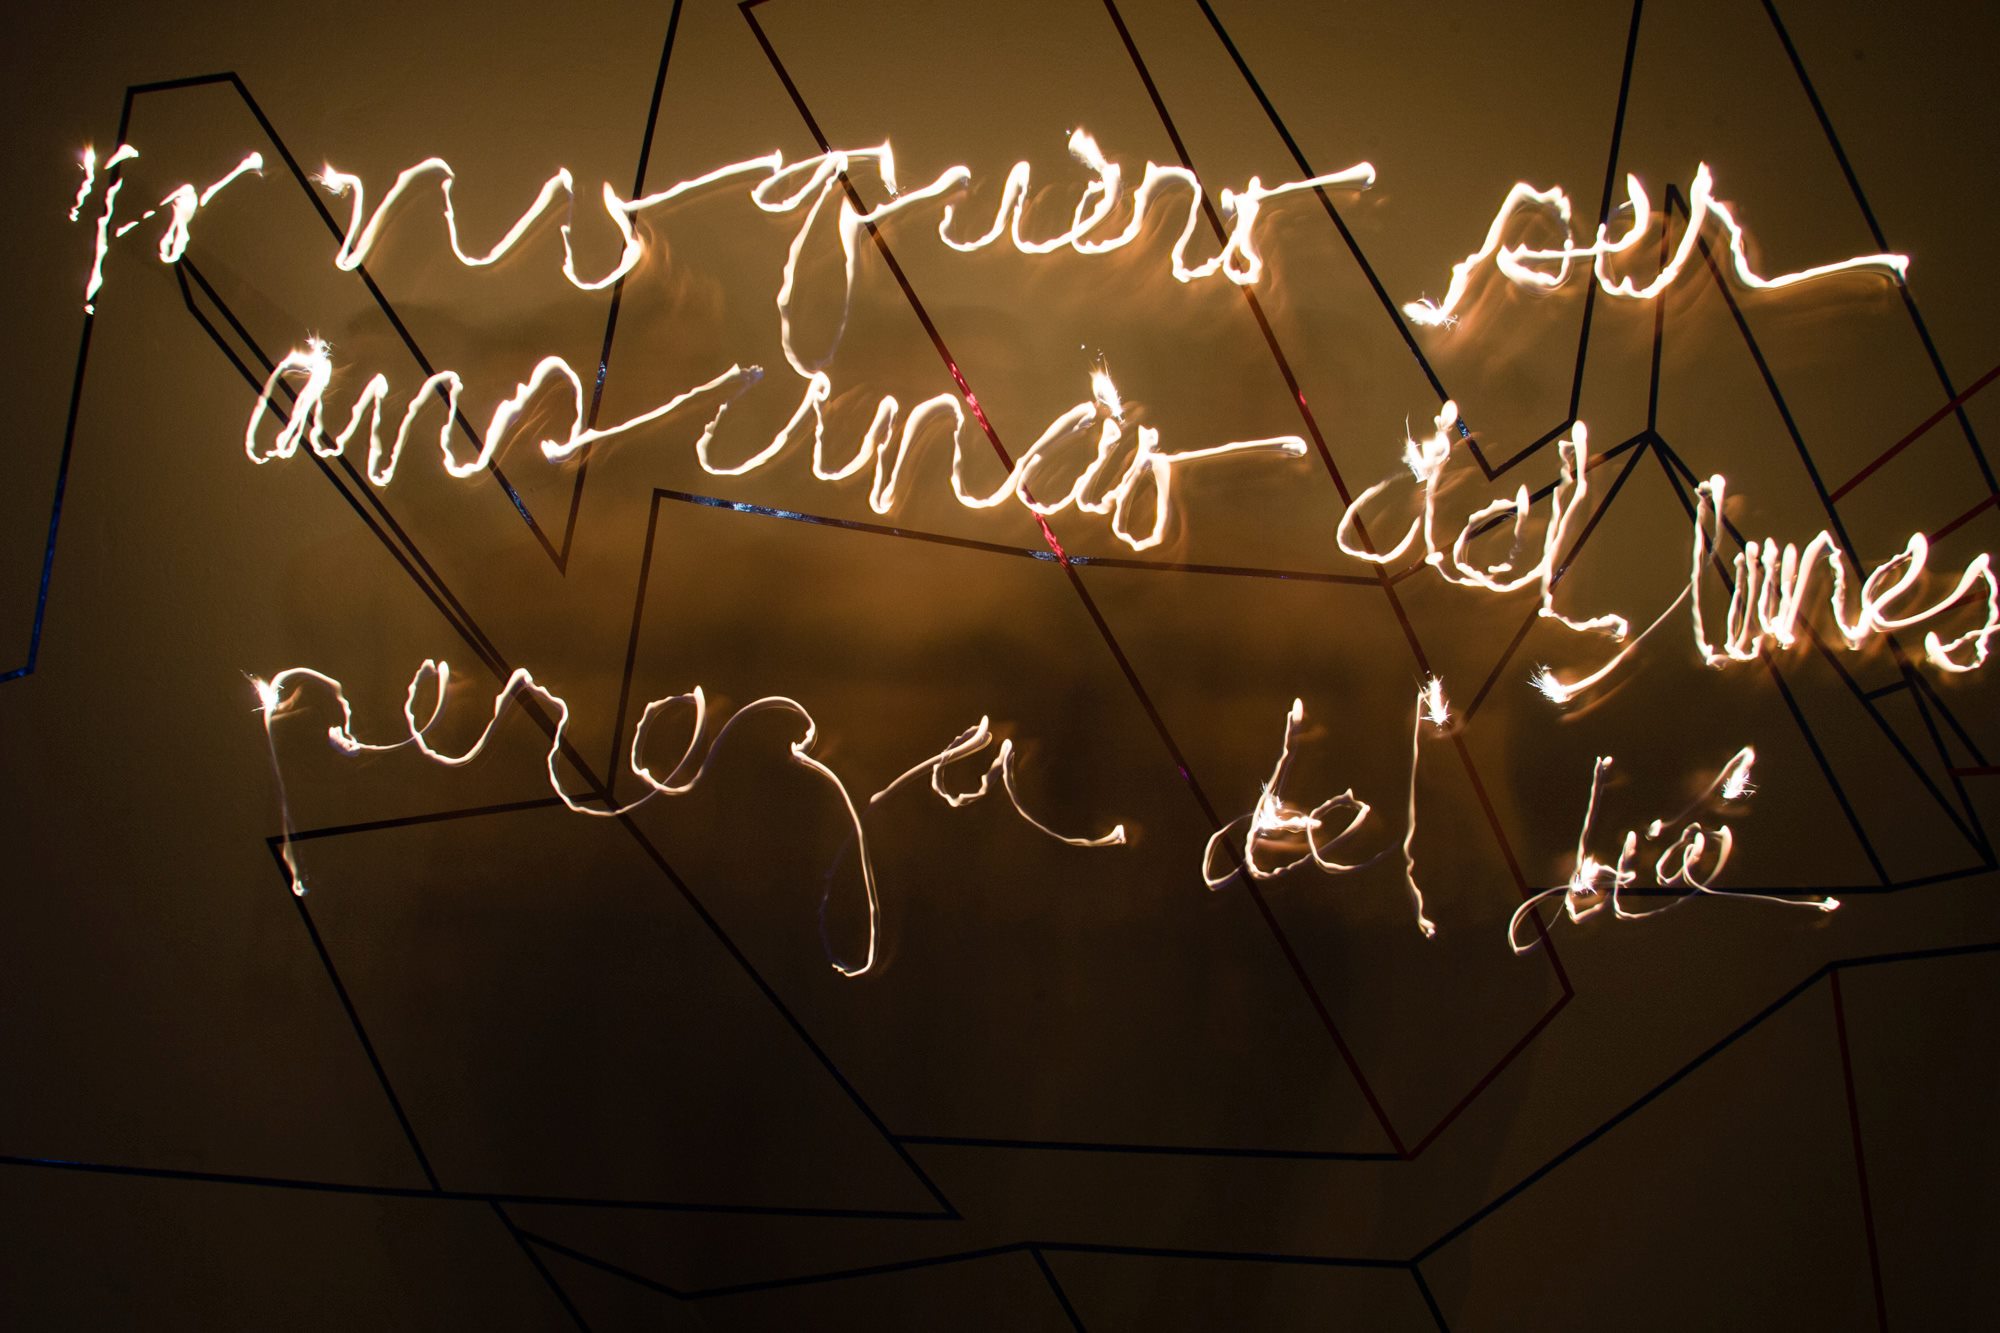 Yo no quiero ser
cansancio del lunes
pereza del día